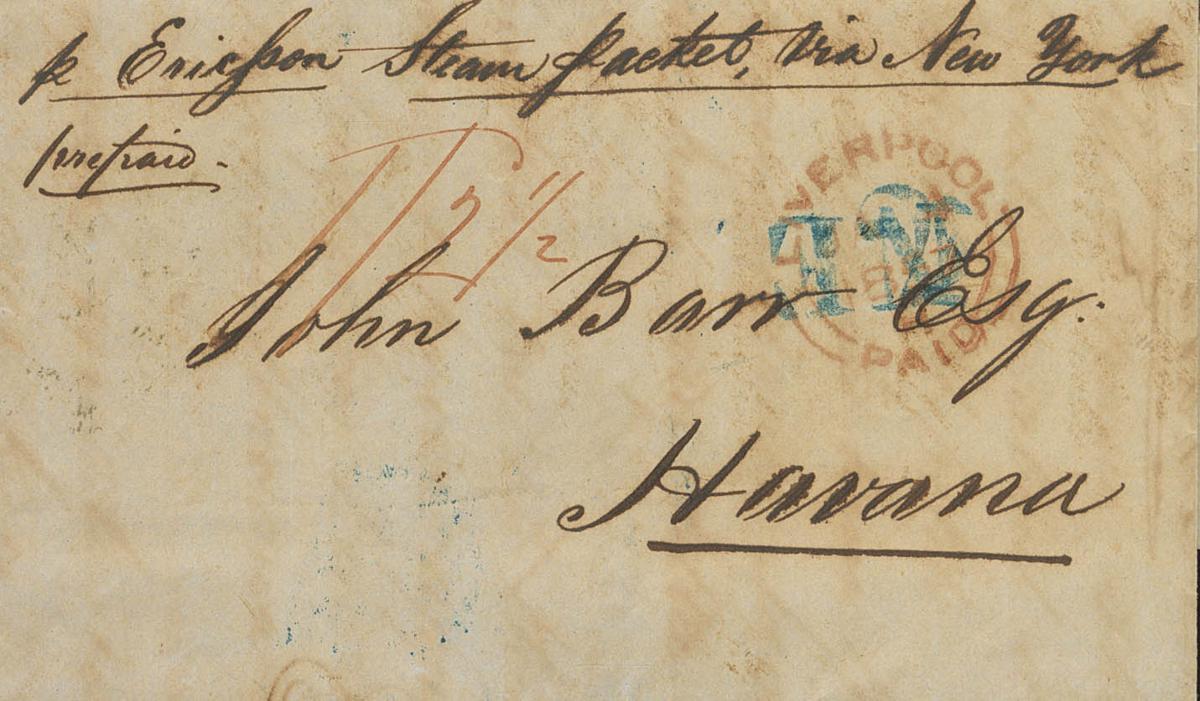 p Ericsson Steam packet, via New York
prepaid.
1/2 1/2
John Barr Esq:
Havana
LIVERPOOL
1857
PAID